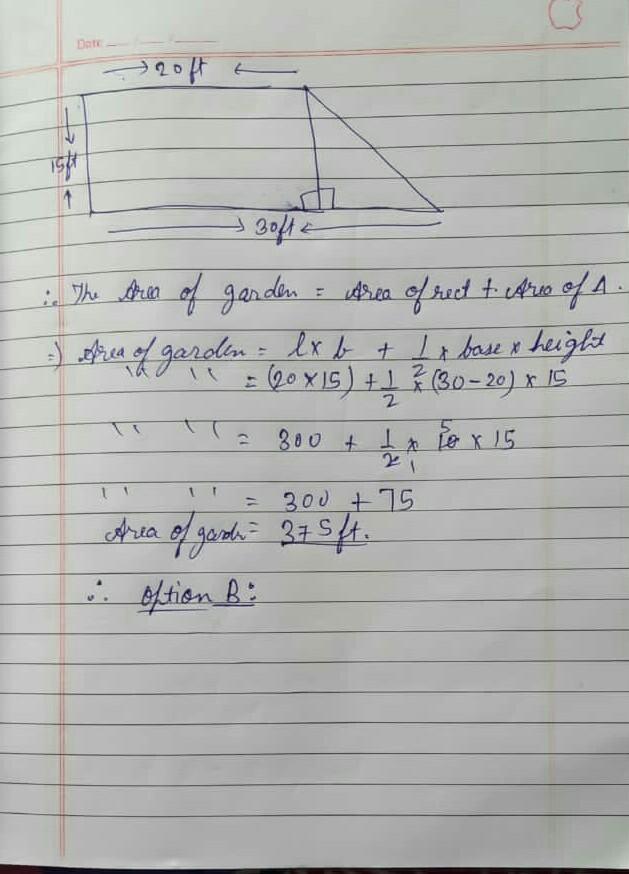 Date
→ 20ft ←
15ft
→ 30ft ←
∴ The Area of garden = Area of rect + Area of Δ.
⇒) Area of garden = l x b + 1/2 x base x height
" " = (20 x 15) + 1/2 x (30-20) x 15
" " = 300 + 1/2 x 10 5 x 15
1
" " = 300 + 75
Area of gard = 375 ft.
∴ Option B: